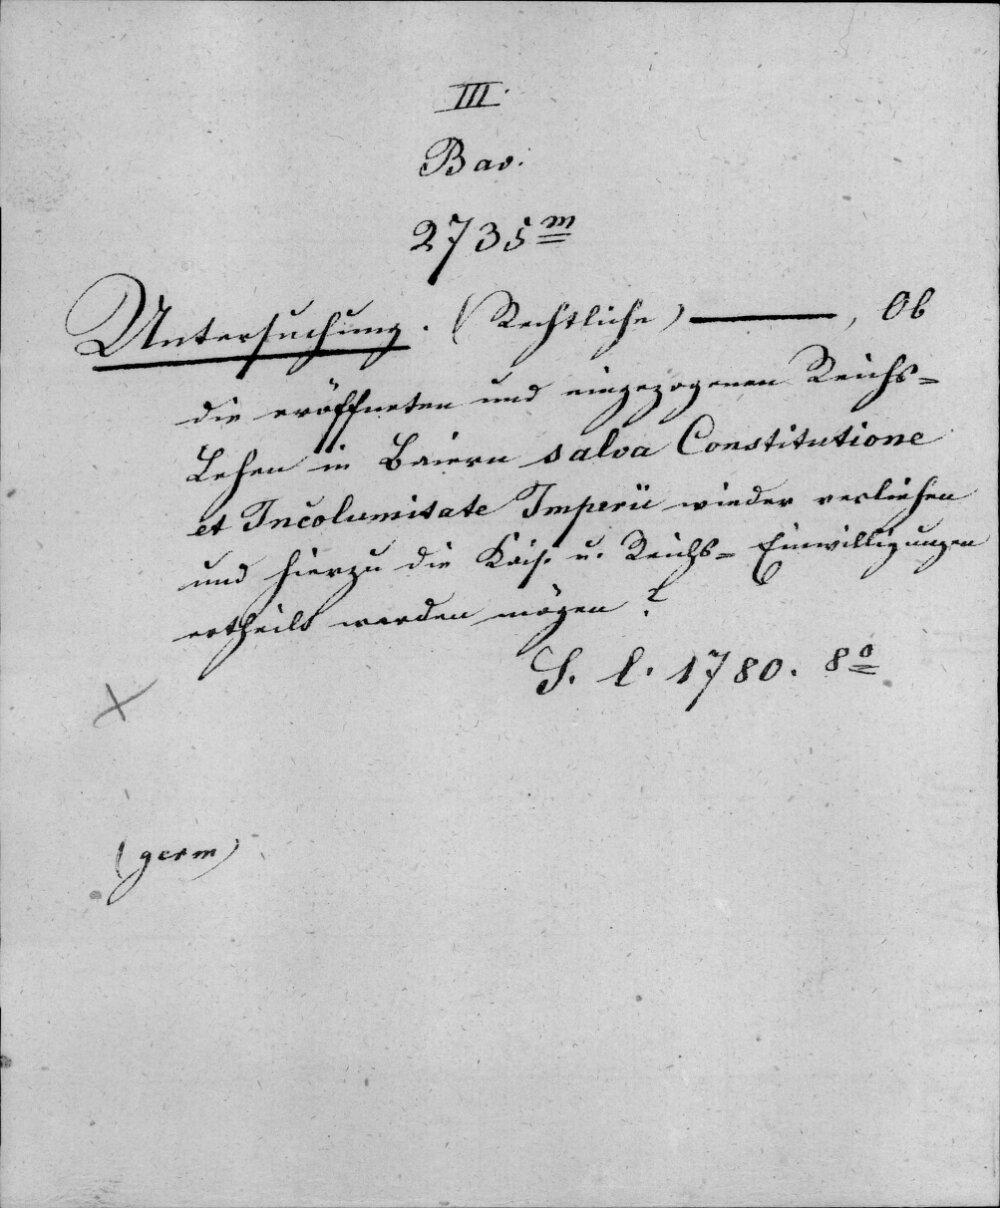 III.
Bav.
2735 m
Untersuchung. (Rechtliche) ———, Ob
die eröffneten und eingezogenen Reichs=
Lehen in Baiern salva Constitutione
et Incolumitate Imperii wieder verliehen
und hierzu die Kais. u. Reichs= Einwilligungen
ertheilt werden mögen?
S. l. 1780. 8o
(germ)